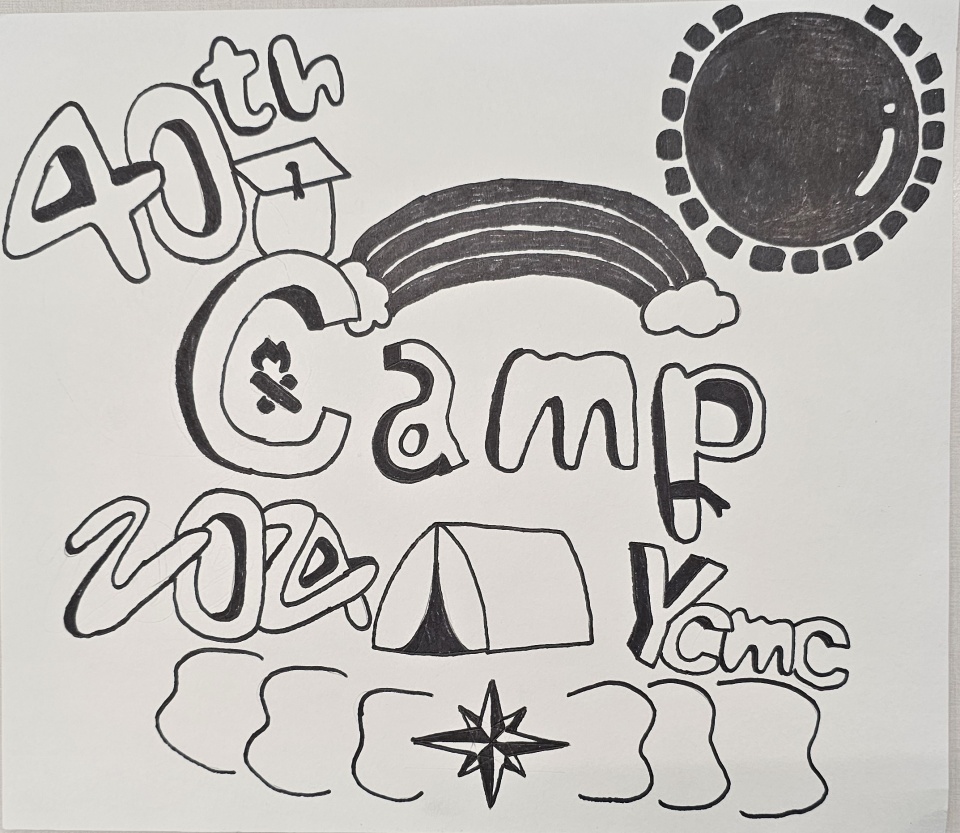 40th
Camp
2024
Ycmc